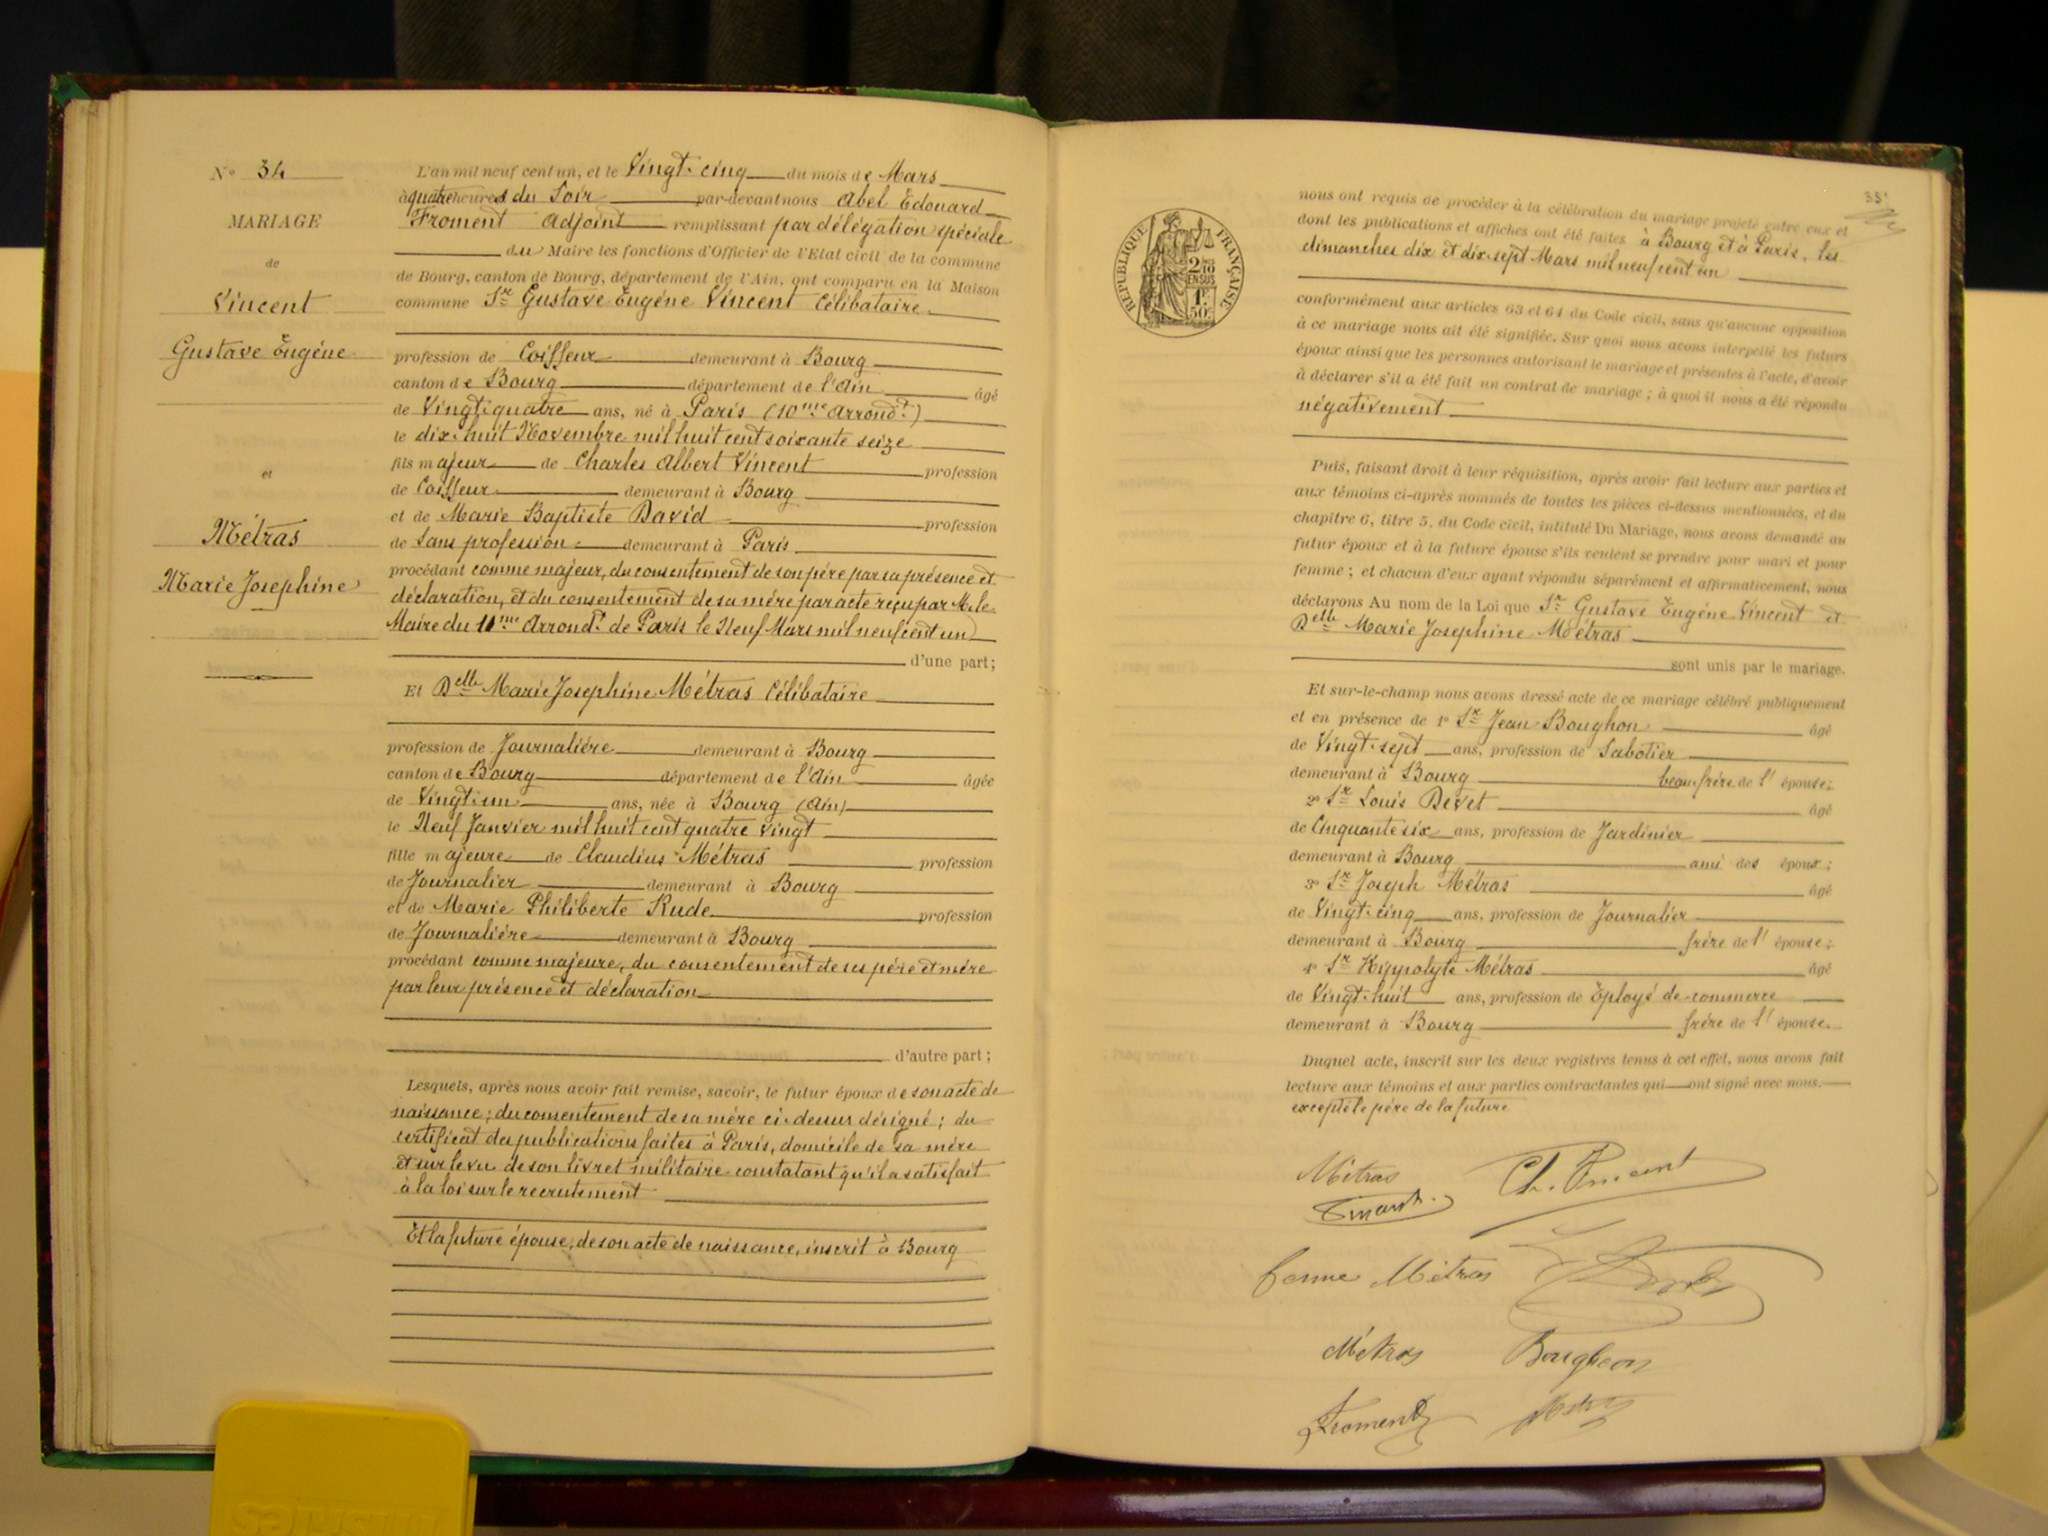 N° 34
MARIAGE
de
Vincent
Gustave Eugéne
et
Métras
Marie Josephine
L'an mil neuf cent un, et le Vingt-cinq du mois de Mars
à quatre heures du Soir par-devant nous Abel Edouard
Froment Adjoint remplissant par délégation spéciale
du Maire les fonctions d'Officier de l'Etat civil de la commune
de Bourg, canton de Bourg, département de l'Ain, ont comparu en la Maison
commune Sr Gustave Eugéne Vincent Célibataire
profession de Coiffeur demeurant à Bourg
canton de Bourg département de l'Ain âgé
de Vingt-quatre ans, né à Paris (10me Arrondt)
le dix-huit Novembre mil huit cent soixante seize
fils majeur de Charles Albert Vincent profession
de Coiffeur demeurant à Bourg
et de Marie Baptiste David profession
de Sans profession demeurant à Paris
procédant comme majeur, du consentement de son père par sa présence et
déclaration, et du consentement de sa mére par acte reçu par M. le
Maire du 11me Arrondt de Paris le Neuf Mars mil neuf cent un
d'une part;
Et Delle Marie Josephine Métras Célibataire
profession de Journaliére demeurant à Bourg
canton de Bourg département de l'Ain âgée
de Vingt-un ans, née à Bourg (Ain)
le Neuf Janvier mil huit cent quatre vingt
fille majeure de Claudius Métras profession
de Journalier demeurant à Bourg
et de Marie Philiberte Rude profession
de Journaliére demeurant à Bourg
procédant comme majeure, du consentement de ses père et mére
par leur présence et déclaration
d'autre part;
Lesquels, après nous avoir fait remise, savoir, le futur époux de son acte de
naissance; du consentement de sa mére ci-dessus désigné; du
certificat des publications faites à Paris, domicile de sa mére
et sur le vu de son livret militaire constatant qu'il a satisfait
à la loi sur le recrutement
Et la future épouse, de son acte de naissance, inscrit à Bourg
RÉPUBLIQUE FRANÇAISE
2/10 EN SUS
1F 50C
nous ont requis de procéder à la célébration du mariage projeté entre eux et
dont les publications et affiches ont été faites à Bourg et à Paris, les
dimanches dix et dix-sept Mars mil neuf cent un
conformément aux articles 63 et 64 du Code civil, sans qu'aucune opposition
à ce mariage nous ait été signifiée. Sur quoi nous avons interpellé les futurs
époux ainsi que les personnes autorisant le mariage et présentes à l'acte, d'avoir
à déclarer s'il a été fait un contrat de mariage; à quoi il nous a été répondu
négativement
Puis, faisant droit à leur réquisition, après avoir fait lecture aux parties et
aux témoins ci-après nommés de toutes les pièces ci-dessus mentionnées, et du
chapitre 6, titre 5, du Code civil, intitulé Du Mariage, nous avons demandé au
futur époux et à la future épouse s'ils veulent se prendre pour mari et pour
femme; et chacun d'eux ayant répondu séparément et affirmativement, nous
déclarons Au nom de la Loi que Sr Gustave Eugéne Vincent et
Delle Marie Josephine Métras
sont unis par le mariage.
Et sur-le-champ nous avons dressé acte de ce mariage célébré publiquement
et en présence de 1° Sr Jean Boughon âgé
de Vingt-sept ans, profession de Sabotier
demeurant à Bourg beau-frére de l' épouse;
2° Sr Louis Devet âgé
de Cinquante six ans, profession de Jardinier
demeurant à Bourg ami des époux;
3° Sr Joseph Métras âgé
de Vingt-cinq ans, profession de Journalier
demeurant à Bourg frére de l' épouse;
4° Sr Hippolyte Métras âgé
de Vingt-huit ans, profession de Eployé de commerce
demeurant à Bourg frére de l' épouse.
Duquel acte, inscrit sur les deux registres tenus à cet effet, nous avons fait
lecture aux témoins et aux parties contractantes qui ont signé avec nous.
excepté le pére de la future
Métras Ch. Vincent
femme Métras
Métras Boughon
Froment